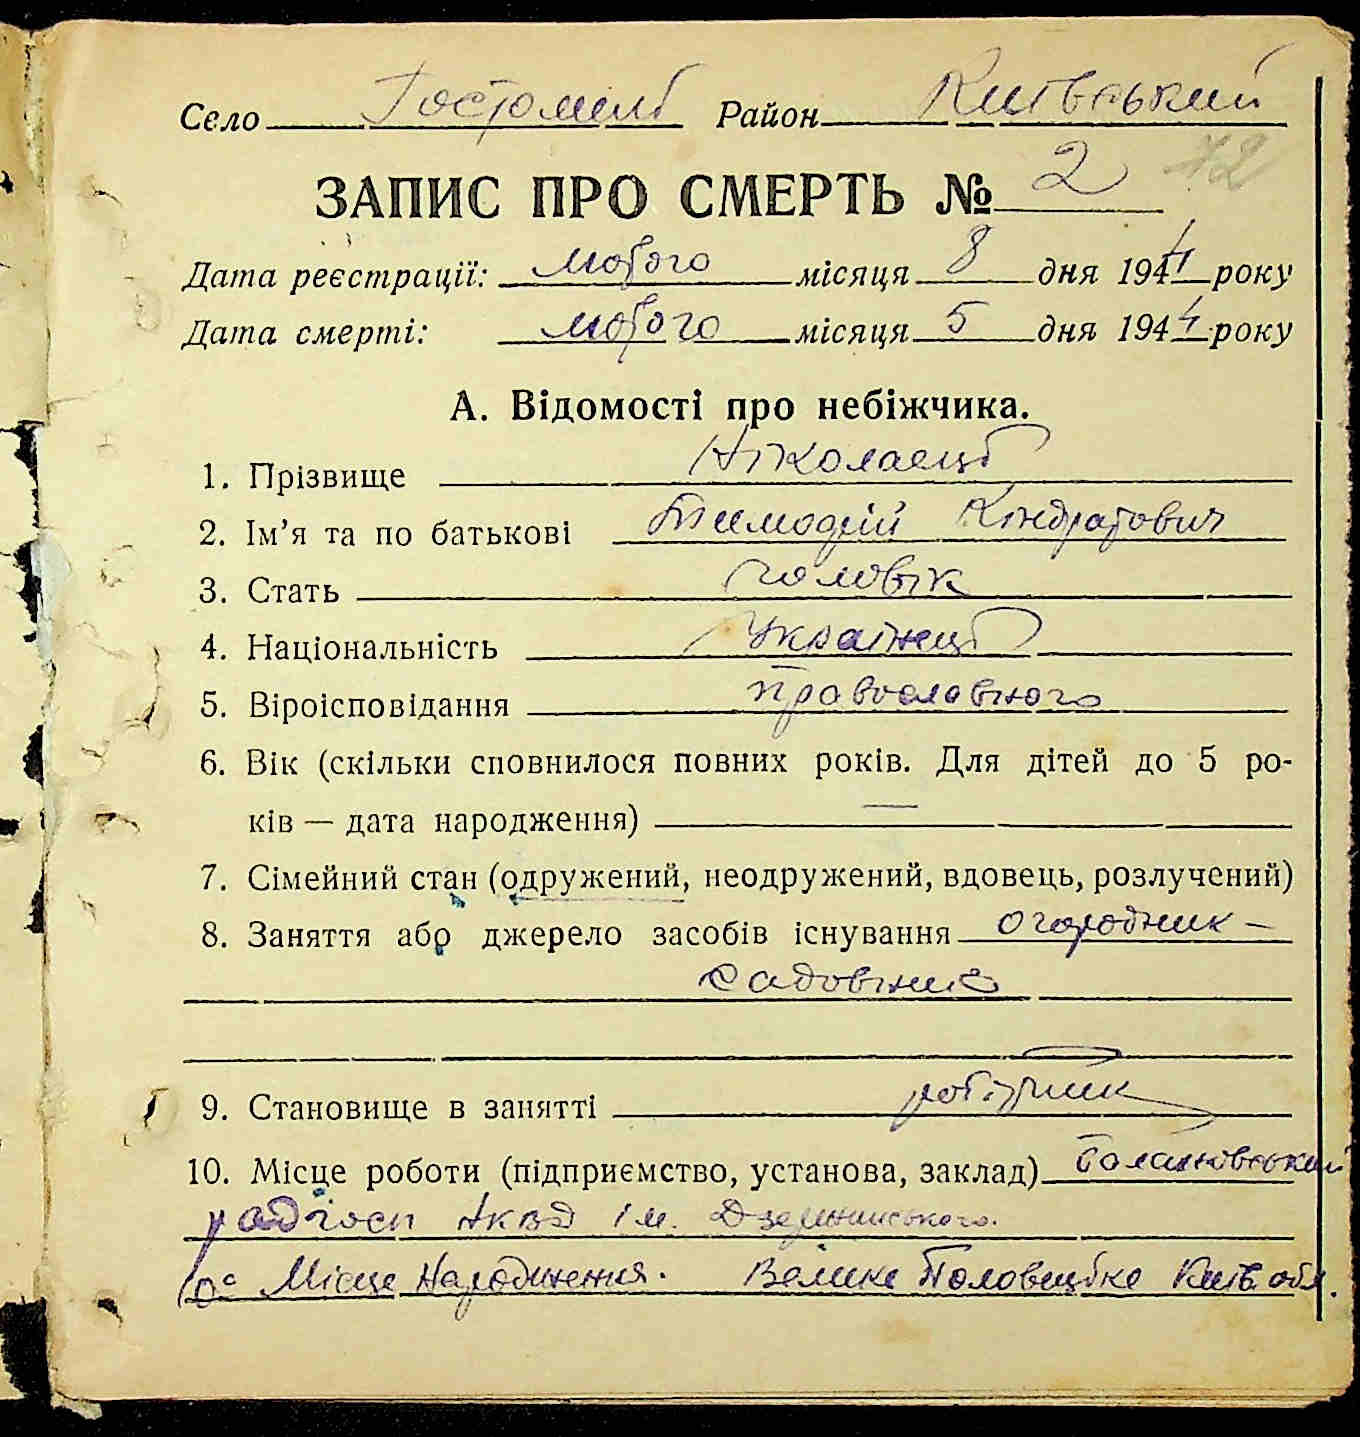 Село Гостомель Район Київський
ЗАПИС ПРО СМЕРТЬ № 2 72
Дата реєстрації: лютого місяця 8 дня 1944 року
Дата смерті: лютого місяця 5 дня 1944 року
А. Відомості про небіжчика.
1. Прізвище Ніколаець
2. Ім’я та по батькові Тимофій Кіндратович
3. Стать чоловік
4. Національність Українець
5. Віроісповідання православного
6. Вік (скільки сповнилося повних років. Для дітей до 5 ро-
ків — дата народження) —
7. Сімейний стан (одружений, неодружений, вдовець, розлучений)
8. Заняття або джерело засобів існування огородник -
садовник
9. Становище в занятті робітник
10. Місце роботи (підприємство, установа, заклад)
радгосп НКВД ім. Дзержинського.
Місце Народження. Велике Половецьке Київ обл.